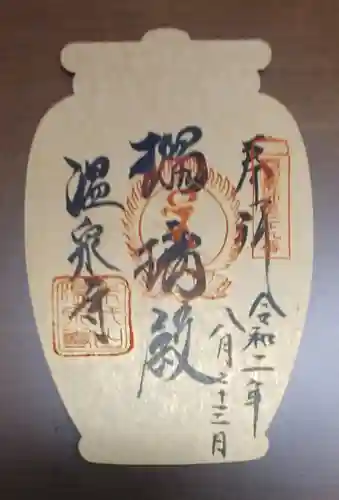 奉拝
令和二年
八月二十三日
瑠璃殿
温泉寺